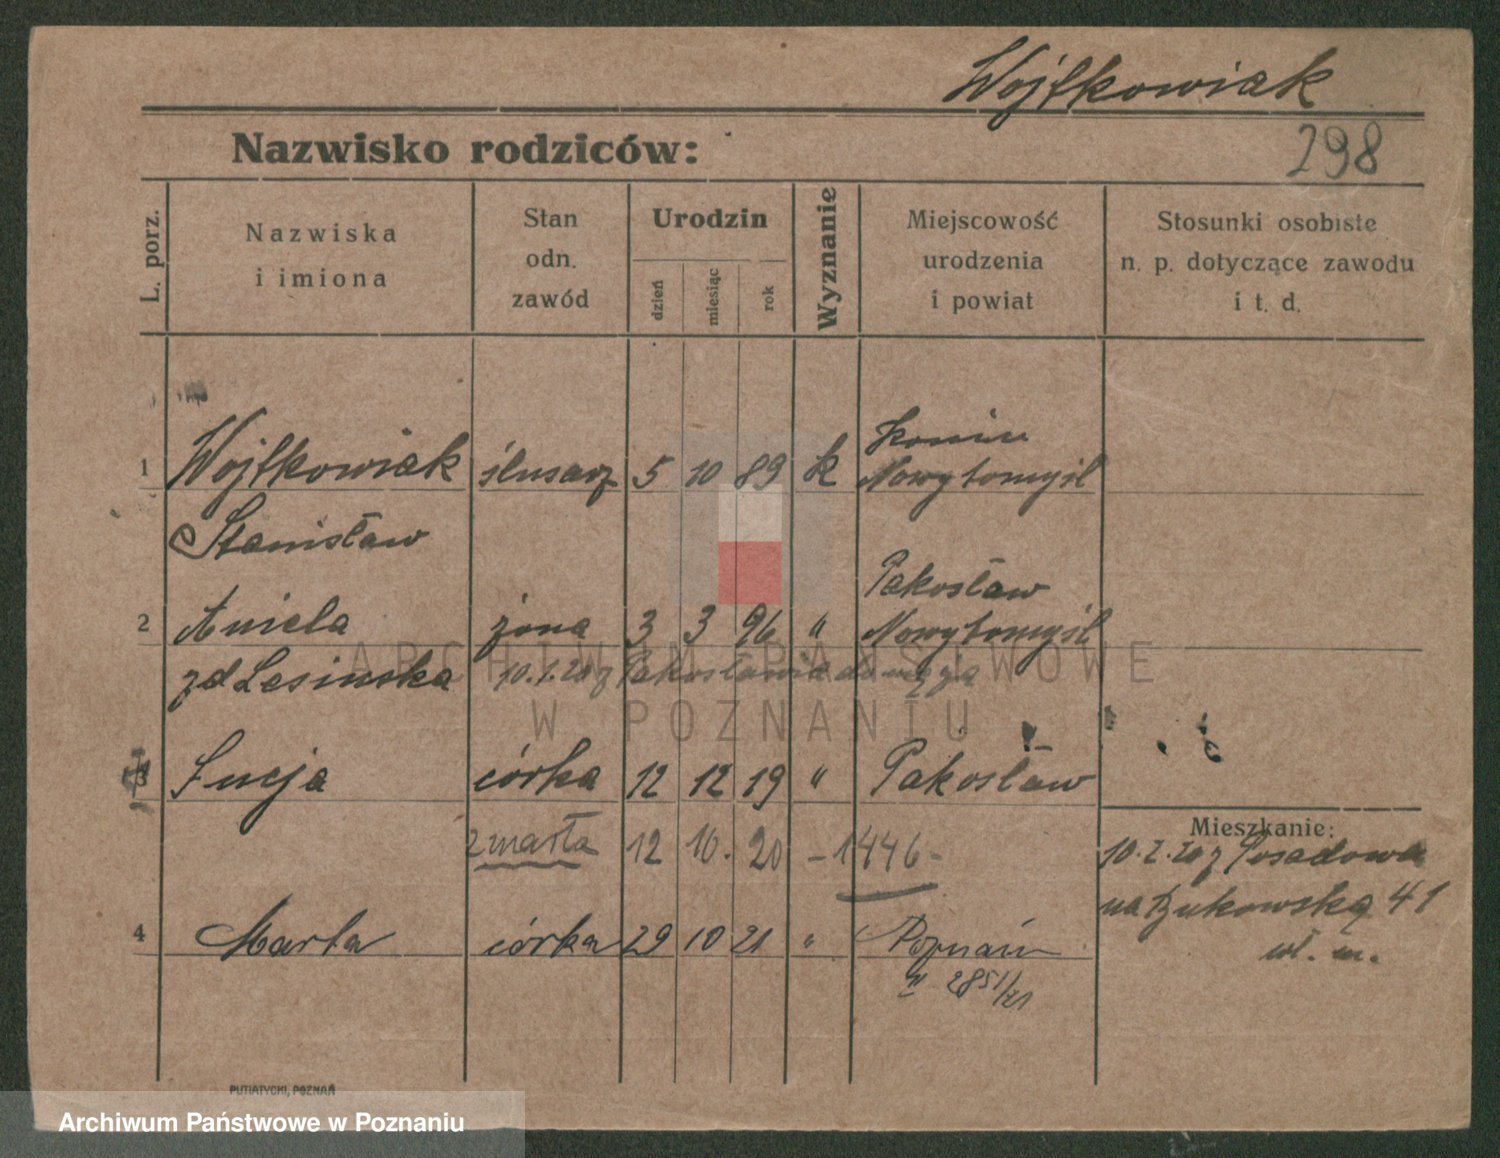 Wojtkowiak
298
Nazwisko rodziców:
L. porz.
Nazwiska
i imiona
Stan
odn.
zawód
Urodzin
dzień
miesiąc
rok
Wyznanie
Miejscowość
urodzenia
i powiat
Stosunki osobiste
n. p. dotyczące zawodu
i t. d.
Konin
1 Wojtkowiak ślusarz 5 10 89 k Nowytomyśl
Stanisław
Pakosław
2 Aniela żona 3 3 96 " Nowytomyśl
zd Lesinska 10.1.20 z Pakosławia do męża
3 Łucja córka 12 12 19 " Pakosław
Mieszkanie:
zmarła 12 10. 20 - 1446 -
10.2.20 z Posadowa
na Bukowską 41
4 Marta córka 29 10 21 " Poznań
wł. m.
2851/21
PUTIATYCKI, POZNAŃ
ARCHIWUM PAŃSTWOWE
W POZNANIU
Archiwum Państwowe w Poznaniu